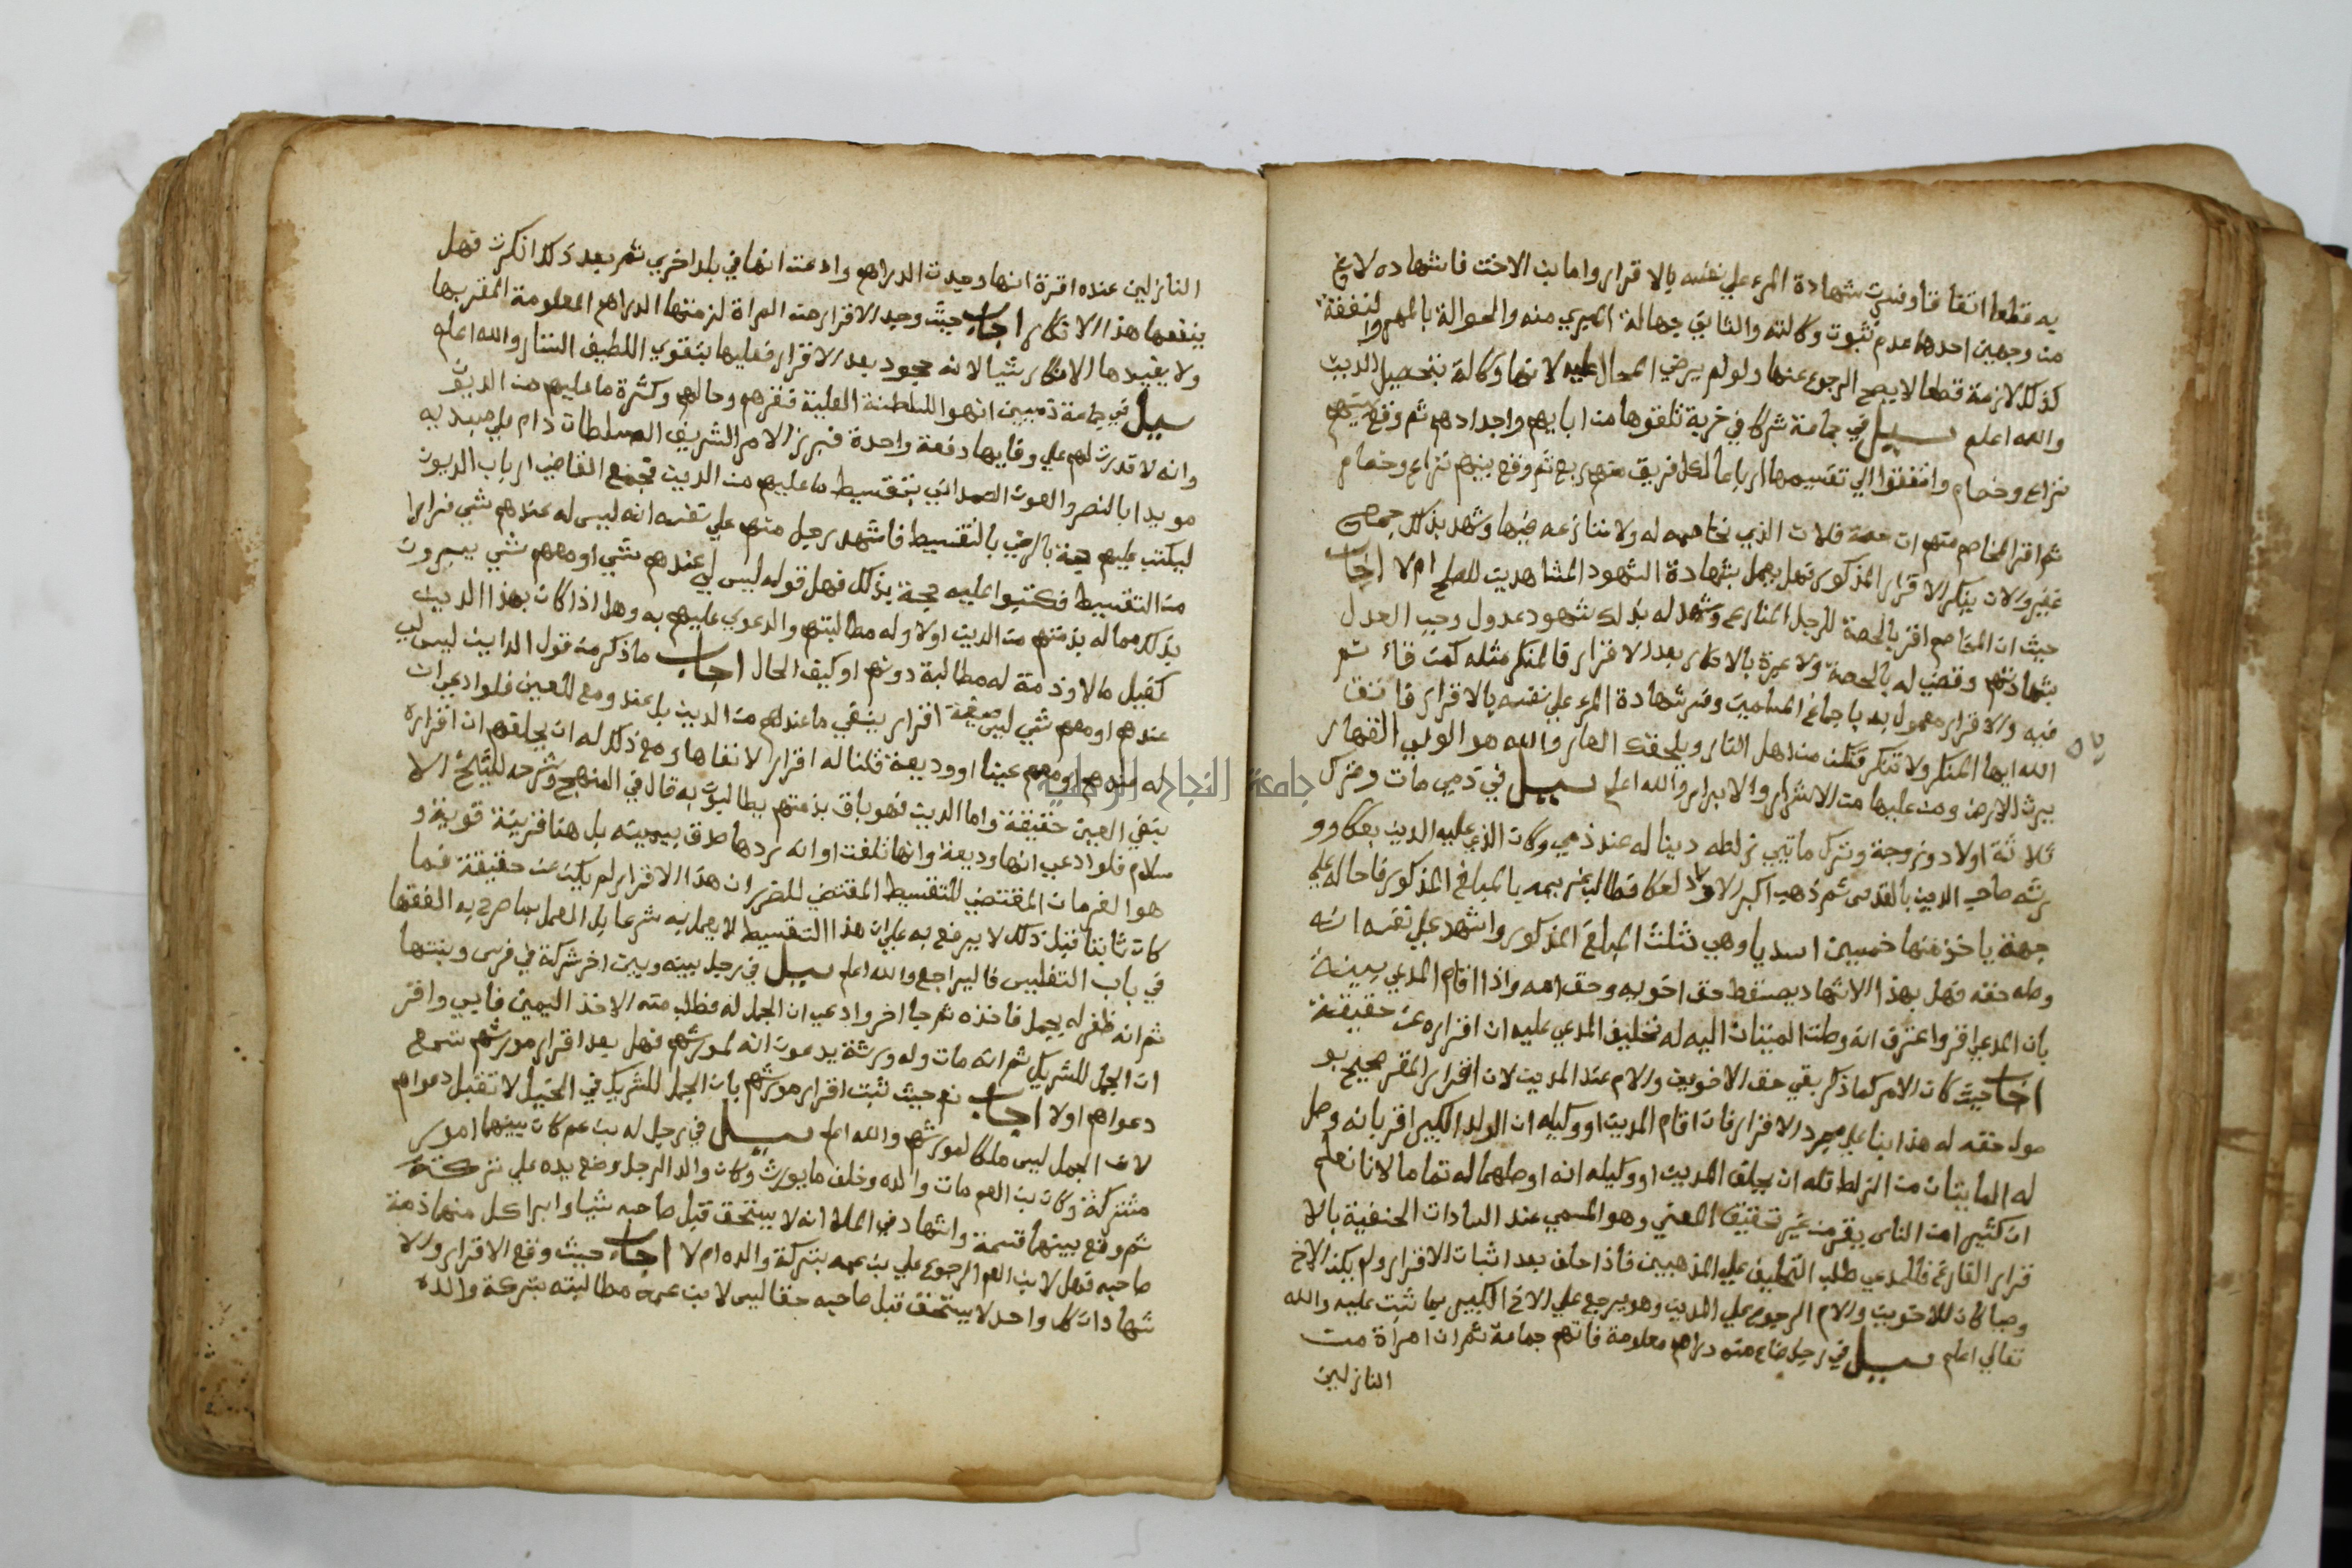 به قطعا اتفاقا وفسرت شهادة المرء علي نفسه بالاقرار واما بنت الاخت فاشهاده لاغ
من وجهين احدهما عدم ثبوت وكالته والثاني جهالة المبري منه والحوالة بالمهر والنفقة
كذلك لازمة قطعا لا يصح الرجوع عنها ولو لم يرض المحال عليه لانها وكالة بتحصيل الدين
والله اعلم سيل في جماعة شركا في خربة تلقوها من ابايهم واجدادهم ثم وقع بينهم
نزاع وخصام واتفقوا الي تقسيمها ارباعا لكل فريق منهم ربع ثم وقع بينهم نزاع وخصام
ثم اقر المخاصم منهم ان حصة فلان الذي يخاصمه له ولا ننازعه فيها وشهد بذلك جمع
غفير والان ينكر الاقرار المذكور فهل يعمل بشهادة الشهود المشاهدين للصلح ام لا اجاب
حيث ان المخاصم اقر بالحصة للرجل المنازع وشهد له بذلك شهود عدول وجب العدل
بشهادتهم وقضي له بالحصة ولا عبرة بالانكار بعد الاقرار فالمنكر مثله كمن قاء ثم
فيه والاقرار معمول به باجماع المسلمين وفسر شهادة المرء علي نفسه بالاقرار فاتق
الله ايها المنكر ولا تنكر فتكن من اهل النار ويلحقك العار والله هو الولي القهار
يرث الارض ومن عليها من الاشرار والابرار والله اعلم سيل في ذمي مات وترك
ثلاثة اولاد وزوجة وترك مايتي زلطه دينا له عند ذمي وكان الذي عليه الدين بعكا وو
رثة صاحب الدين بالقدس ثم ذهب اكبر الاولاد لعكا فطالب غريمه بالمبلغ المذكور فاحاله علي
جهة ياخذ منها خمسين اسديا وهي ثلث المبلغ المذكور واشهد علي نفسه انه
وصله حقه فهل بهذا الاشهاد يسقط حق اخويه وحق امه واذا اقام المدعي بينة
بان المدعي اقر واعترف انه وصلت الميتان اليه له تحليف المدعي عليه ان اقراره عن حقيقة
اجاب حيث كان الامر كما ذكر بقي حق الاخوين والام عند المدين لان اقرار المقر صحيح بو
صول حقه له هذا بنا علي مجرد الاقرار فان اقام المدين او وكيله ان الولد الكبير اقر بانه وصل
له المايتان من الزلط فله ان يحلف المدين او وكيله انه اوصلهما له تماما لانا نعلم
ان كثيرا من الناس يقر من غير تحقيق المعني وهو المسمي عند السادات الحنفية بالا
قرار الفارغ فللمدعي طلب التحليف علي المذهبين فاذا حلف بعد اثبات الاقرار ولم يكن الاخ
وصيا كان للاخوين والام الرجوع علي المدين وهو يرجع علي الاخ الكبير بما ثبت عليه والله
تعالي اعلم سيل في رجل ضاع منه دراهم معلومة فاتهم جماعة ثم ان امراة من
النازلين
النازلين عنده اقرة انها وجدت الدراهم وادعت انها في بلد اخري ثم بعد ذلك انكرت فهل
ينفعها هذا الانكار اجاب حيث وجد الاقرار من المراة لزمتها الدراهم المعلومة المقر بها
ولا يفيدها الانكار شيا لانه جحود بعد الاقرار فعليها بتقوي اللطيف الستار والله اعلم
سيل في جماعة ذميين انهوا للسلطنة العلية فقرهم وحالهم وكثرة ما عليهم من الديون
وانه لا قدرت لهم علي وفايها دفعة واحدة فبرز الامر الشريف السلطان دام
مويدا بالنصر والعون الصمداني بتقسيط ما عليهم من الدين فجمع القاضي ارباب الديون
ليكتب عليهم حجة بالرضي بالتقسيط فاشهد رجل منهم علي نفسه انه ليس له عندهم شي فرارا
من التقسيط فكتبوا عليه حجة بذلك فهل قوله ليس لي عندهم شي او معهم شي يبرون
بذلك مما له بذمتهم من الدين اولا وله مطالبتهم والدعوي عليهم به وهل اذا كان بهذا الدين
كفيل مالا وذمة له مطالبة دونهم او كيف الحال اجاب ما ذكر من قول الداين ليس لي
عندهم او معهم شي ليس صيغة اقرار ينفي ما عندهم من الدين بل عند ومع للعين فلو ادعي ان
له عندهم او معهم عينا او وديعة قلنا له اقرارك نفاها ومع ذلك له ان يحلفهم ان اقراره
بنفي العين حقيقة واما الدين فهو باق بذمتهم يطالبون به قال في المنهج وشرحه للشيخ الا
سلام فلو ادعي انها وديعة وانها تلفت او انه ردها صدق بيمينه بل هنا قرينة قوية و
هو الفرمان المقتضي للتقسيط المقتضي للضرر ان هذا الاقرار لم يكن عن حقيقة فما
كان ثابتا قبل ذلك لا يرفع به علي ان هذا التقسيط لا يعمل به شرعا بل العمل بما صرح به الفقها
في باب التفليس فاليراجع والله اعلم سيل في رجل بينه وبين اخر شركة في فرس وبنتها
ثم انه ظفر له بجمل فاخذه ثم جا اخر وادعي ان الجمل له فطلب منه الاخذ اليمين فابي واقر
ان الجمل للشريك ثم انه مات وله ورثة يدعون انه لمورثهم فهل بعد اقرار مورثهم تسمع
دعواهم اولا اجاب نعم حيث ثبت اقرار مورثهم بان الجمل للشريك في الخيل لا تقبل دعواهم
لان الجمل ليس ملكا لمورثهم والله اعلم سيل في رجل له بن عم كان بينهما امور
مشتركة وكان بن العم مات والده وخلف ما يورث وكان والد الرجل وضع يده علي تركته
ثم وقع بينهما قسمة واشهاد في الملا انه لا يستحق قبل صاحبه شيا وابرا كل منهما ذمة
صاحبه فهل لابن العم الرجوع علي بن عمه بتركة والده ام لا اجاب حيث وقع الاقرار والا
شهادان كل واحد لا يستحق قبل صاحبه حقا ليس لابن عمه مطالبته بتركة والده
جامعة النجاح الوطنية